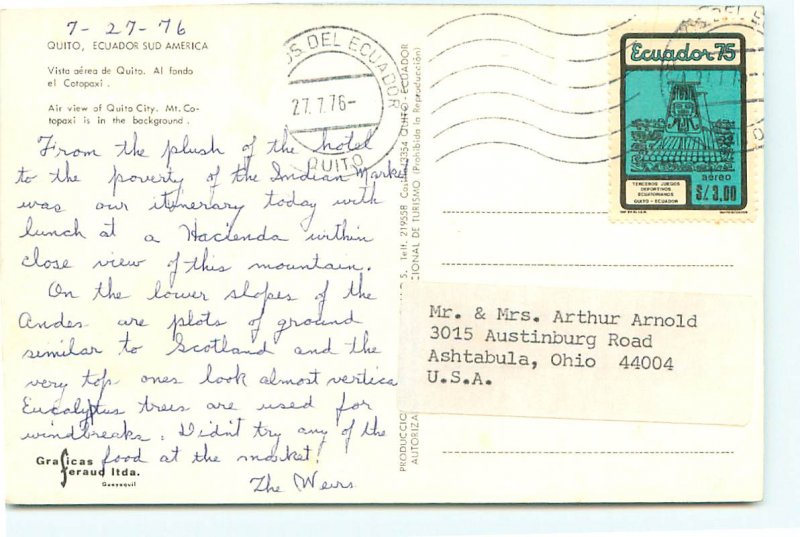 7-27-76
QUITO, ECUADOR SUD AMERICA
Vista aérea de Quito. Al fondo
el Cotopaxi.
Air view of Quito City. Mt. Co-
topaxi is in the background.
From the plush of the hotel
to the poverty of the Indian Market
was our itinerary today with
lunch at a Hacienda within
close view of this mountain.
On the lower slopes of the
Andes are plots of ground
similar to Scotland and the
very top ones look almost vertica
Eucalyptus trees are used for
windbreaks. Didn't try any of the
food at the market!
The Weirs
Graficas
feraud ltda.
Guayaquil
OS DEL ECUADOR
27.7.76-
QUITO
PRODUCCIO
S, Telf. 219558 Casilla 3354 QUITO-ECUADOR
AUTORIZA
CIONAL DE TURISMO (Prohibida la Reproducción)
Ecuador 75
aéreo
S/. 3,00
TERCEROS JUEGOS
DEPORTIVOS
ECUATORIANOS
QUITO - ECUADOR
Mr. & Mrs. Arthur Arnold
3015 Austinburg Road
Ashtabula, Ohio 44004
U.S.A.